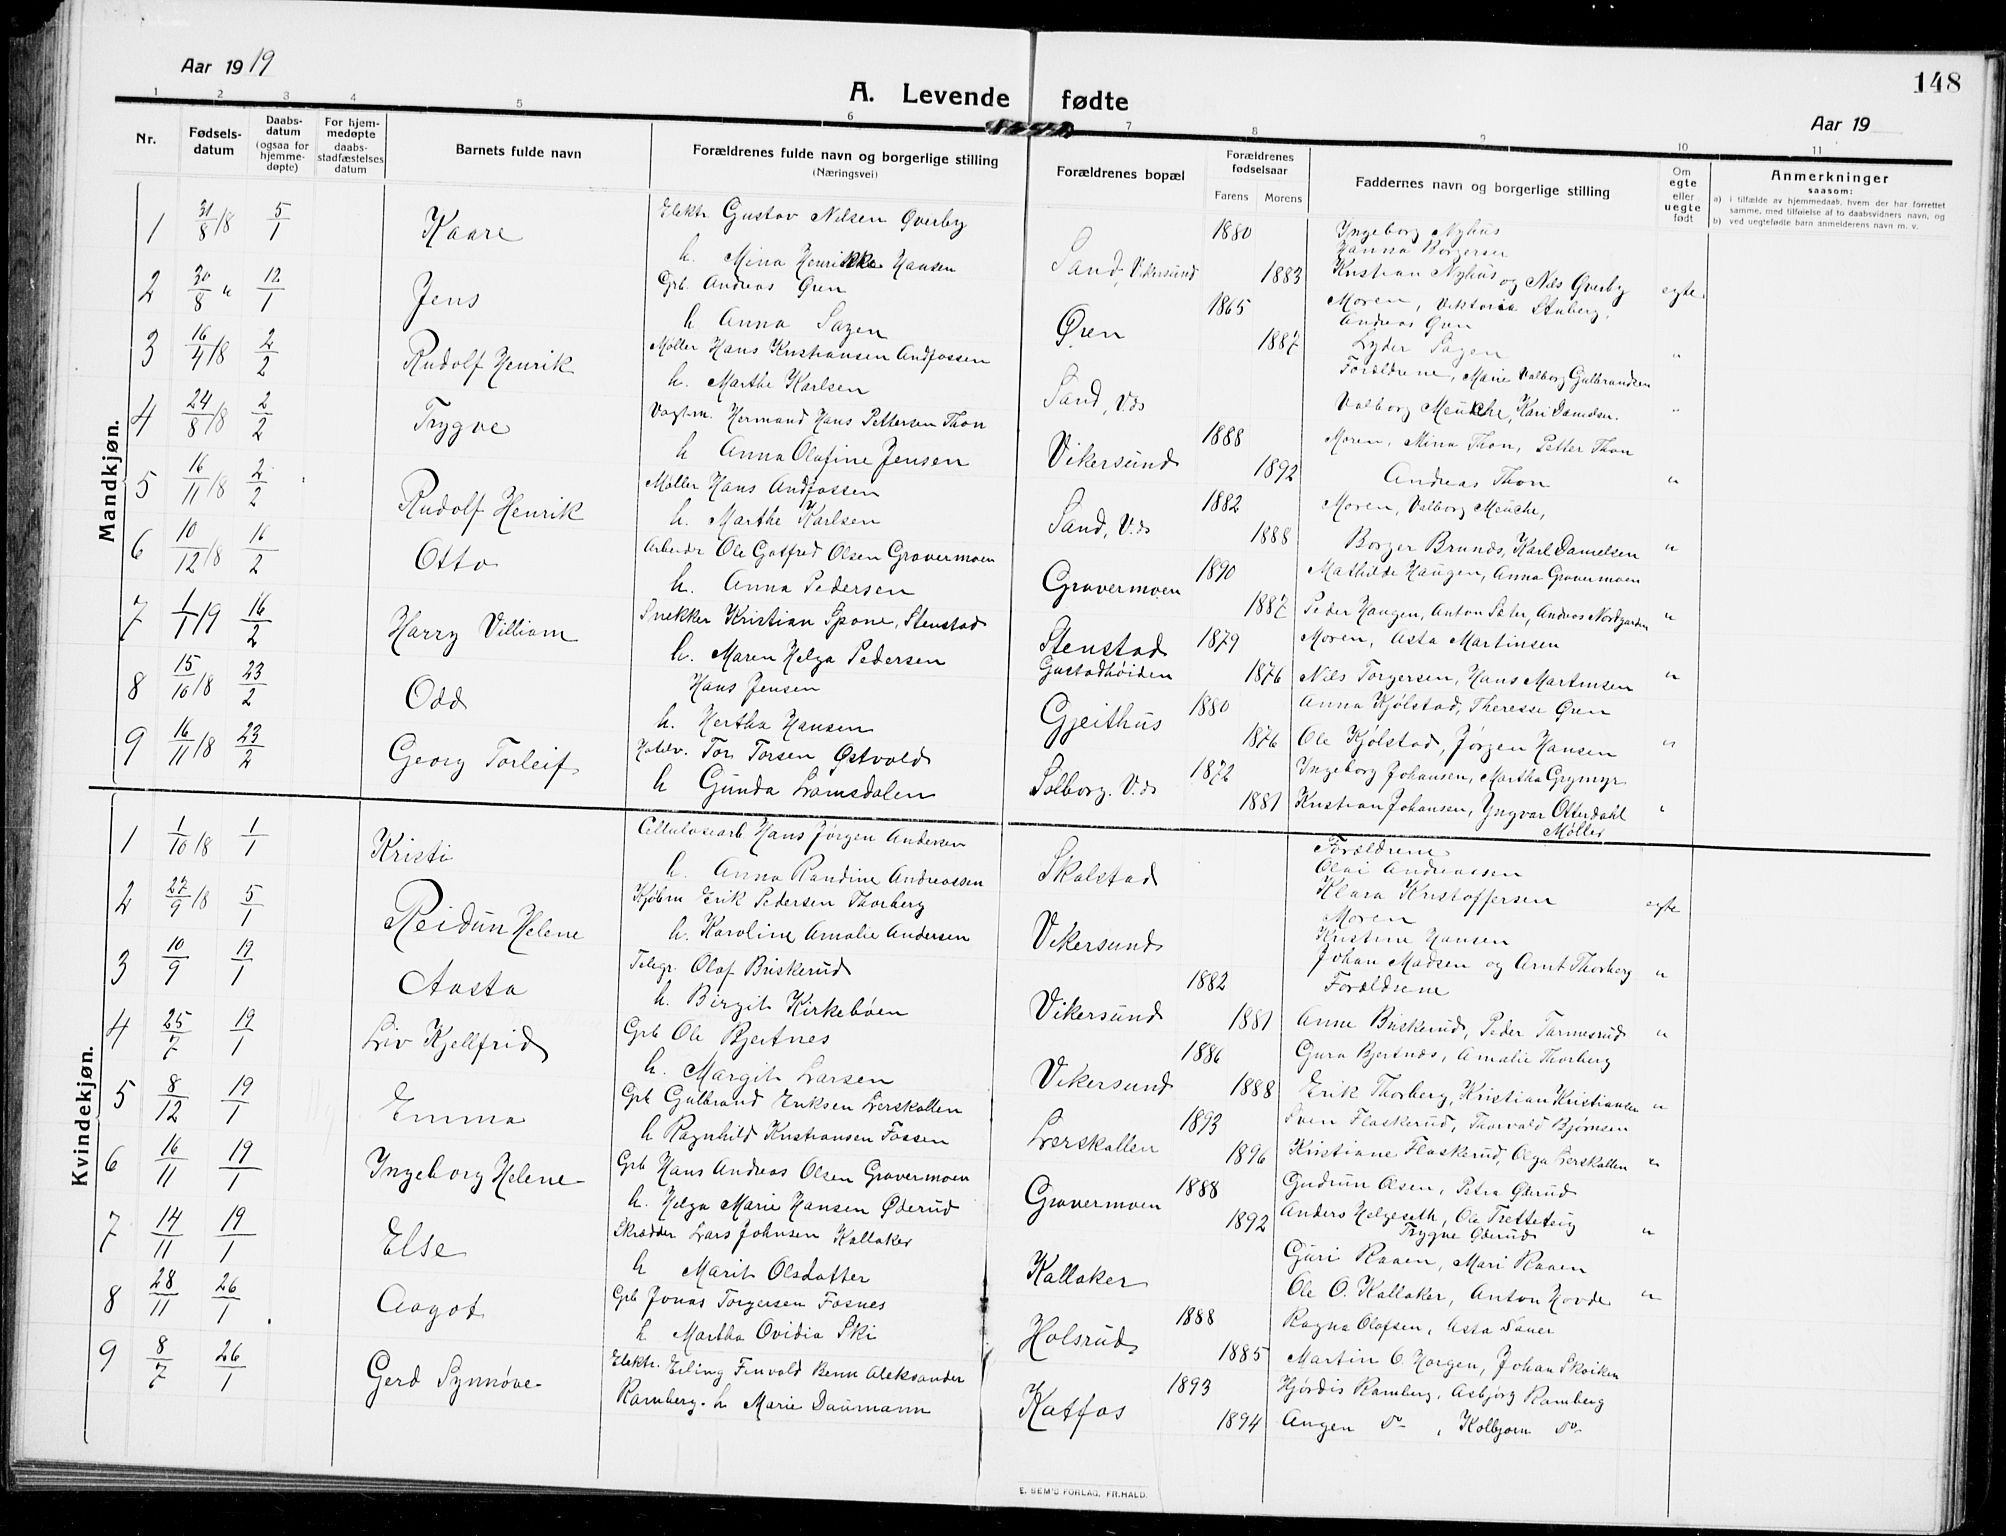 Aar 1919
148
A. Levende fødte
Aar 19
1 2 3 4 5 6 7 8 9 10 11
Nr.
Fødsels-
datum
Daabs-
datum
(ogsaa for
hjemme-
døpte)
For hjem-
medøpte
daabs-
stadfæstelses
datum
Barnets fulde navn
Forældrenes fulde navn og borgerlige stilling
(Næringsvei)
Forældrenes bopæl
Forældrenes
fødselsaar
Farens Morens
Faddernes navn og borgerlige stilling
Om
egte
eller
uegte
født
Anmerkninger
saasom:
a) i tilfælde av hjemmedaab, hvem der har forrettet
samme, med tilføielse af to daabsvidners navn, og
b) ved uegtefødte barn anmelderens navn m. v.
Mandkjøn.
1 31/8 18 5/1 Kaare Elektr Gustav Nilsen Øverby 1880 Ingeborg Nyhus
Hanna Borgersen
h. Mina Henrikke Hansen Sand, Vikersund 1883 Kristian Nyhus og Nils Øverby egte
2 30/8 " 12/1 Jens Grb. Andreas Øren 1865 Moren, Viktoria Stuberg,
Andreas Øren
h Anna Sagen Øren 1887 Lyder Sagen "
3 16/4 18 2/2 Rudolf Henrik Møller Hans Kristiansen Andfossen Forældrene, Marie Valborg Gulbrandsen
h. Marthe Karlsen Sand, V.ds Valborg Meuche, Kari Danielsen. "
4 24/8 18 2/2 Trygve Vagtm. Hermand Hans Pettersen Thon 1888 Moren, Mina Thon, Petter Thon
h Anna Olafine Jensen Vikersund 1892 Andreas Thon "
5 16/11 18 2/2 Rudolf Henrik Møller Hans Andfossen 1882 Moren, Valborg Meuche,
h. Marthe Karlsen Sand, V.ds 1888 Borger Brunds, Karl Danielsen "
6 10/12 18 16/2 Otto Arbeidr Ole Gotfred Olsen Gravermoen 1890 Mathilde Haugen, Anna Gravermoen
h. Anna Pedersen Gravermoen 1887 Peder Haugen, Anton Sæter, Andreas Nordgarden "
7 1/1 19 16/2 Harry Villiam Snekker Kristian Spone, Stenstad Stenstad 1879 Moren, Asta Martinsen
h. Maren Helga Pedersen Gustadhøiden 1876 Nils Torgersen, Hans Martinsen "
8 15/10 18 23/2 Odd Hans Jensen 1880 Anna Kjølstad, Theresse Øren
h. Hertha Hansen Gjeithus 1876 Ole Kjølstad, Jørgen Hansen "
9 16/11 18 23/2 Georg Torleif Tor Torsen Østvold 1872 Ingeborg Johansen, Martha Grymyr
h Gunda Lamsdalen Solborg. V.ds 1881 Kristian Johansen, Yngvar Otterdahl "
Møller
Kvindekjøn.
1 1/10 18 1/1 Kristi Cellulosearb Hans Jørgen Andersen Forældrene
Olai Andreassen
h. Anna Randine Andreassen Skalstad Klara Kristoffersen egte
2 27/9 18 5/1 Reidun Helene Kjøbm Erik Pedersen Thorberg Moren
Kristine Hansen
h. Karoline Amalie Andersen Vikersund Johan Madsen og Arnt Thorberg "
3 10/9 19/1 Aasta Telegr. Olaf Briskerud 1882 Forældrene
h. Birgit Kirkebøen Vikersund 1881 Anne Briskerud, Peder Tormusrud "
4 25/7 19/1 Liv Kjellfrid Grb Ole Bjertnes 1886 Guro Bjertnæs, Amalie Thorberg
h. Margit Larsen Vikersund 1888 Erik Thorberg, Kristian Kristiansen "
5 8/12 19/1 Emma Grb Gulbrand Eriksen Lerskallen 1893 Sven Flaskerud, Thorvald Bjørnsen
h Ragnhild Kristiansen Fossen Lerskallen 1896 Kristiane Flaskerud, Olga Lerskallen "
6 16/11 19/1 Ingeborg Helene Grb Hans Andreas Olsen Gravermoen 1888 Gudrun Olsen, Petra Øderud
h. Helga Marie Hansen Øderud Gravermoen 1892 Anders Helgeseth, Ole Tretteteig "
Trygve Øderud
7 14/11 19/1 Else Skrædder Lars Johnsen Kallaker Guri Raaen, Mari Raaen
h Marit Olsdatter Kallaker Ole O. Kallaker, Anton Hovde "
8 28/11 26/1 Aagot Grb Jonas Torgersen Fosnes 1888 Ragna Olafsen, Asta Sauer
h Martha Ovidia Ski Holsrud 1885 Martin C. Horgen, Johan Skviken
9 8/7 26/1 Gerd Synnøve Elektr. Eiling Finvald Benn Aleksander 1893 Hjørdis Ramberg, Asbjørg Ramberg
Ramberg. h Marie Daumann Katfos 1894 Augen do , Kolbjørn do
E. SEM'S FORLAG, FR.HALD.